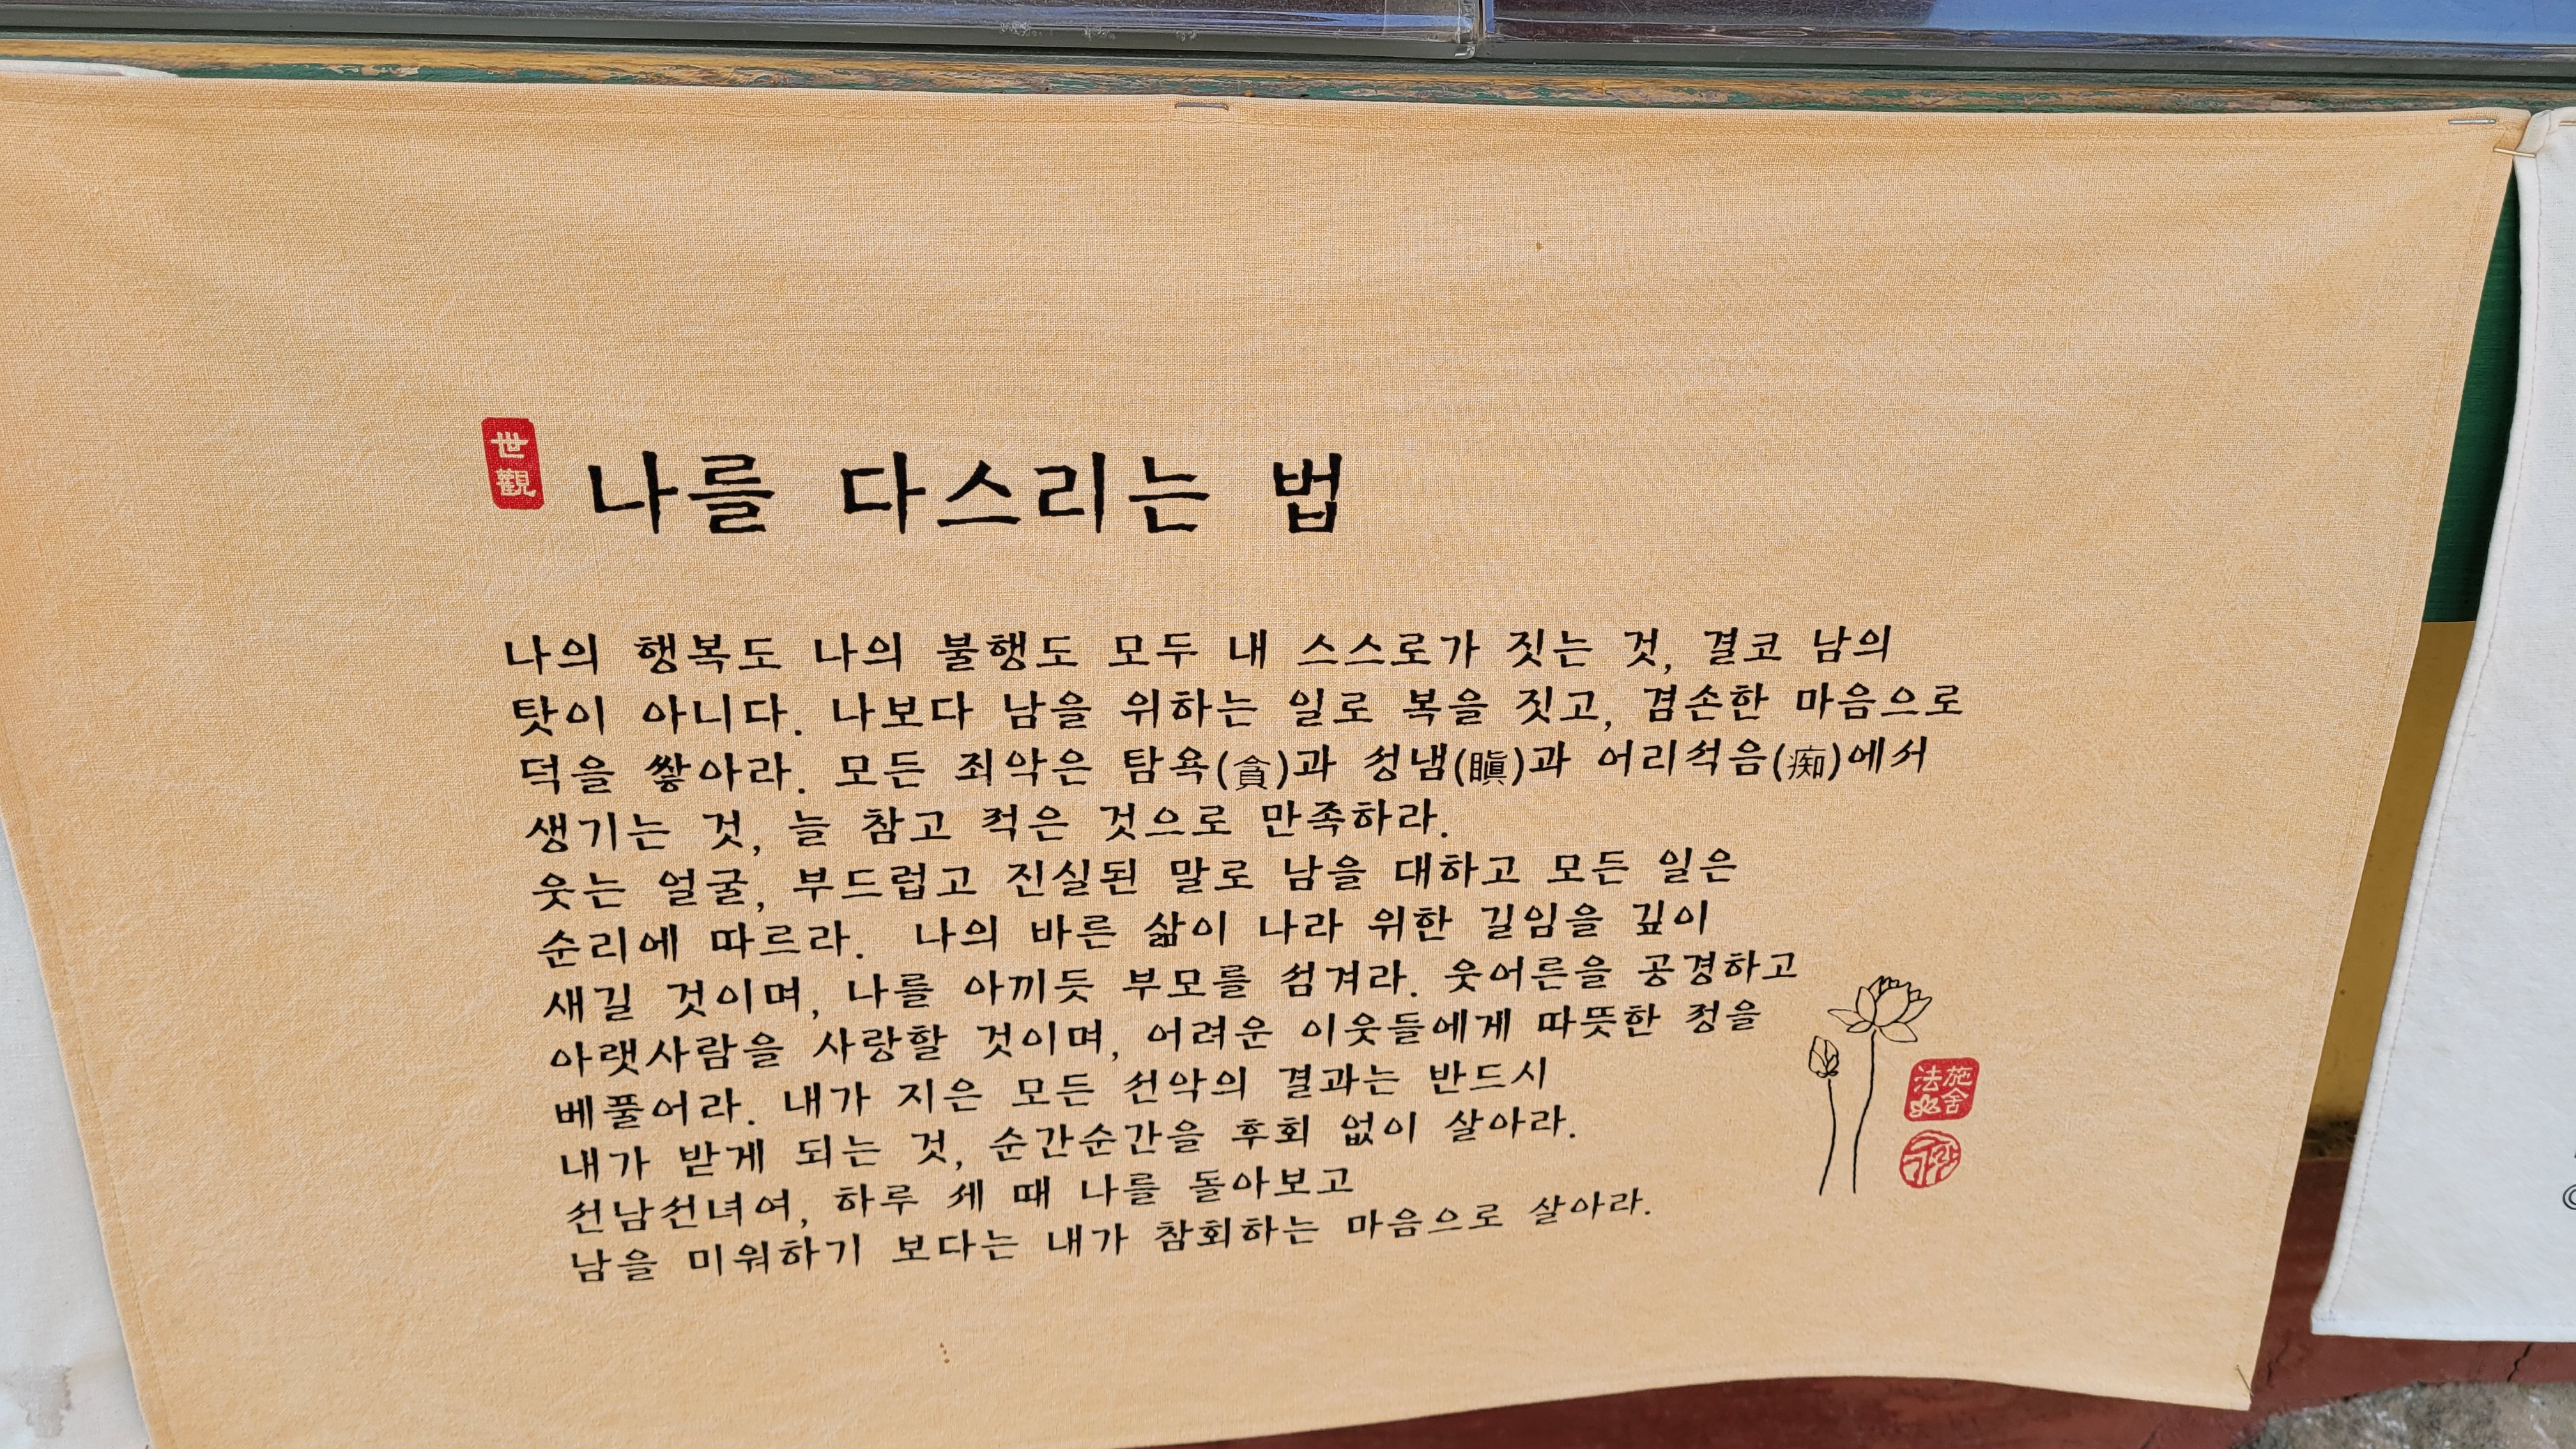 世觀
나를 다스리는 법
나의 행복도 나의 불행도 모두 내 스스로가 짓는 것, 결코 남의
탓이 아니다. 나보다 남을 위하는 일로 복을 짓고, 겸손한 마음으로
덕을 쌓아라. 모든 죄악은 탐욕(貪)과 성냄(瞋)과 어리석음(痴)에서
생기는 것, 늘 참고 적은 것으로 만족하라.
웃는 얼굴, 부드럽고 진실된 말로 남을 대하고 모든 일은
순리에 따르라. 나의 바른 삶이 나라 위한 길임을 깊이
새길 것이며, 나를 아끼듯 부모를 섬겨라. 웃어른을 공경하고
아랫사람을 사랑할 것이며, 어려운 이웃들에게 따뜻한 정을
베풀어라. 내가 지은 모든 선악의 결과는 반드시
내가 받게 되는 것, 순간순간을 후회 없이 살아라.
선남선녀여, 하루 세 때 나를 돌아보고
남을 미워하기 보다는 내가 참회하는 마음으로 살아라.
施舍
法